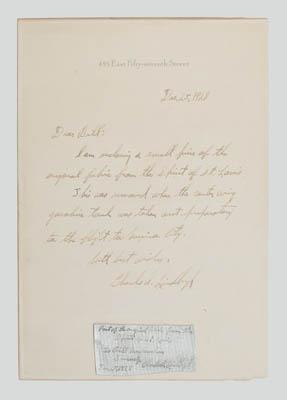 435 East Fifty-seventh Street
Dec 25, 1928
Dear Bill:
I am enclosing a small piece of the
original fabric from the Spirit of St. Louis
This was removed when the center wing
gasoline tank was taken out preparatory
to the flight to Mexico City.
With best wishes,
Charles A. Lindbergh
Part of the original fabric from the
Spirit of St. Louis
To Bill